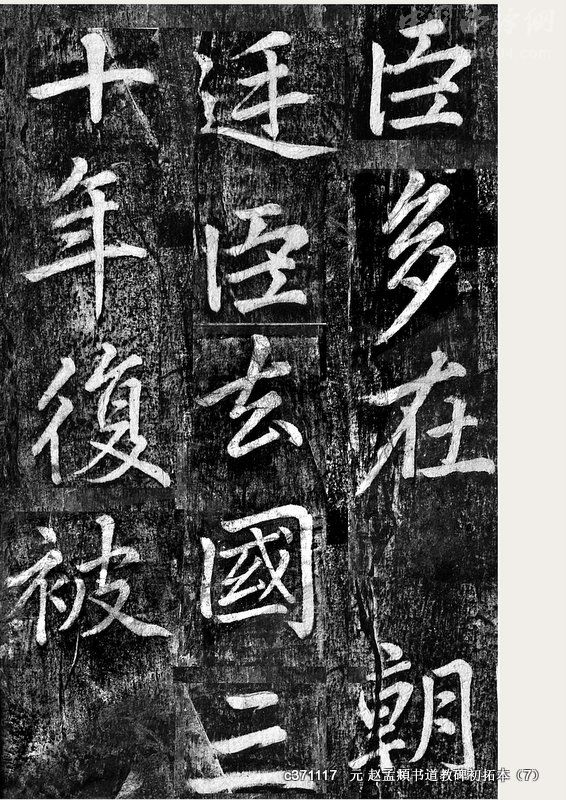 臣多在朝
廷臣去國三
十年復被
c371117 元 赵孟頫书道教碑初拓本（7）